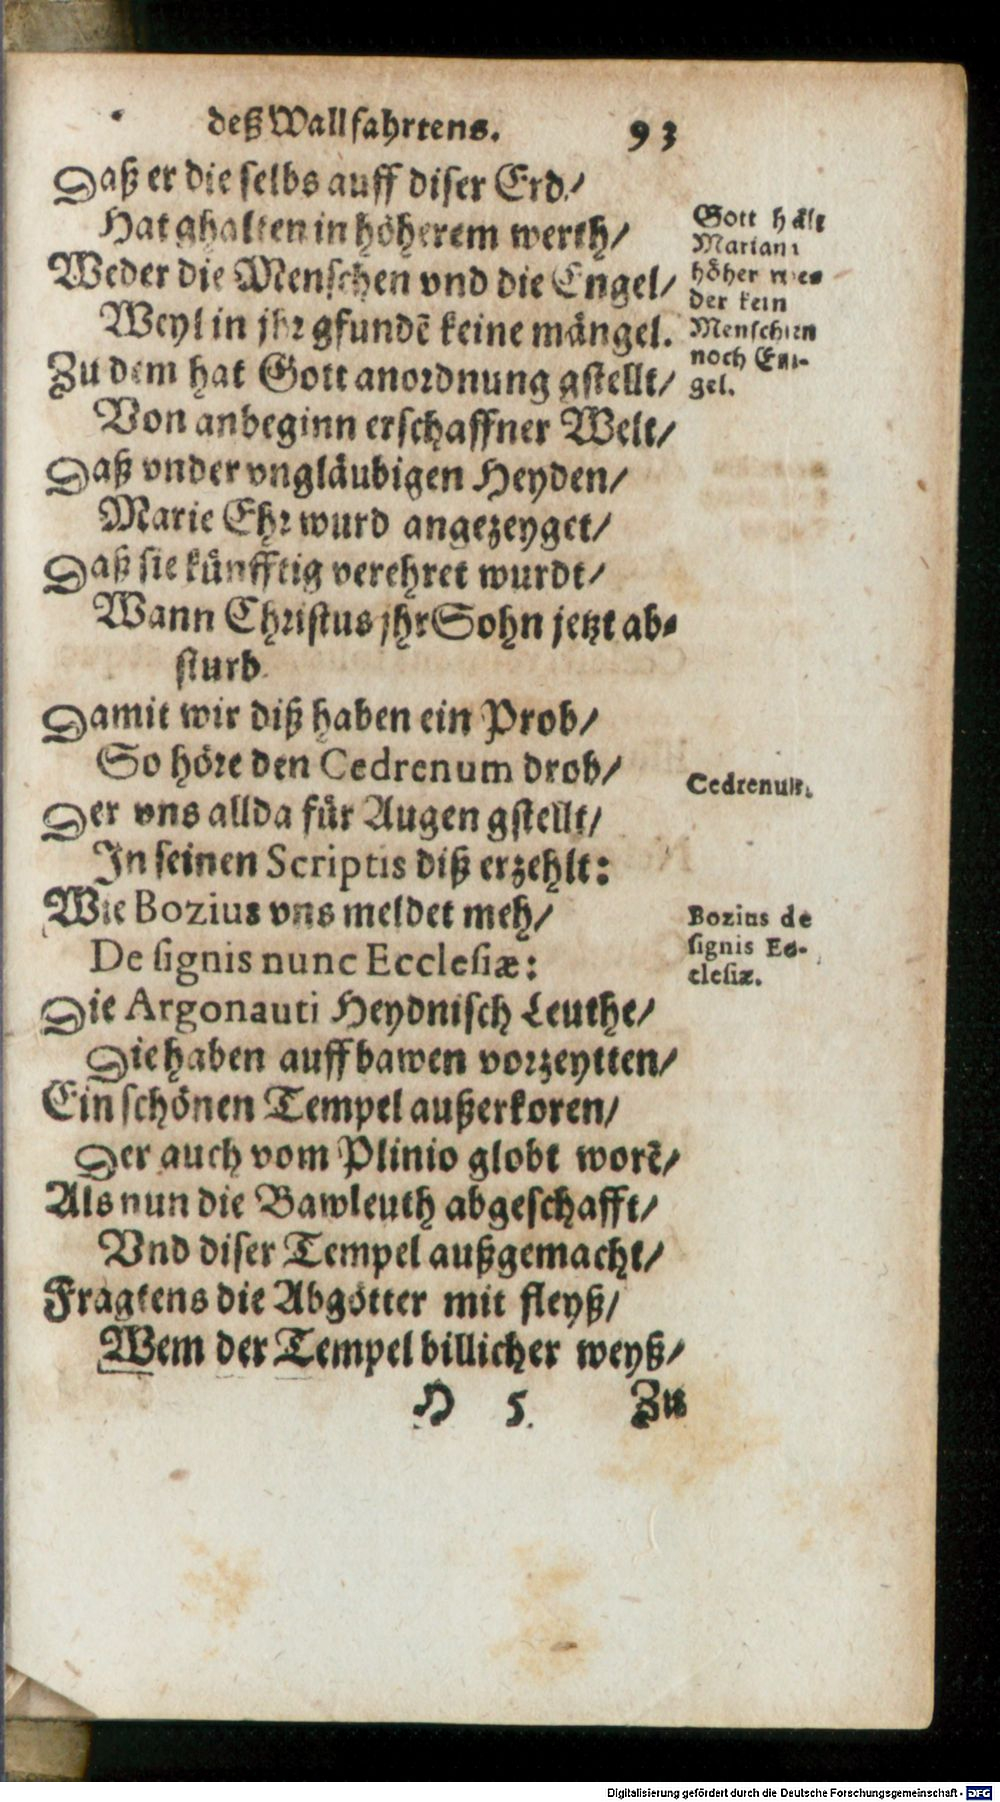 deß Wallfahrtens. 93
Daß er die selbs auff diser Erd/
Hat ghalten in höherem werth/
Weder die Menschen vnd die Engel/
Weyl in jhr gfundē keine mängel.
Gott hält
Mariam
höher we-
der kein
Menschen
noch En-
gel.
Zu dem hat Gott anordnung gstellt/
Von anbeginn erschaffner Welt/
Daß vnder vngläubigen Heyden/
Marie Ehr wurd angezeyget/
Daß sie künfftig verehret wurdt/
Wann Christus jhr Sohn jetzt ab-
sturb.
Damit wir diß haben ein Prob/
So höre den Cedrenum drob/
Cedrenus.
Der vns allda für Augen gstellt/
In seinen Scriptis diß erzehlt:
Wie Bozius vns meldet meh/
De signis nunc Ecclesiæ:
Bozius de
signis Ec-
clesiæ.
Die Argonauti Heydnisch Leuthe/
Die haben auffbawen vorzeytten/
Ein schönen Tempel außerkoren/
Der auch vom Plinio globt worē/
Als nun die Bawleuth abgeschafft/
Vnd diser Tempel außgemacht/
Fragtens die Abgötter mit fleyß/
Wem der Tempel billicher weyß/
H 5. Zu
Digitalisierung gefördert durch die Deutsche Forschungsgemeinschaft - DFG